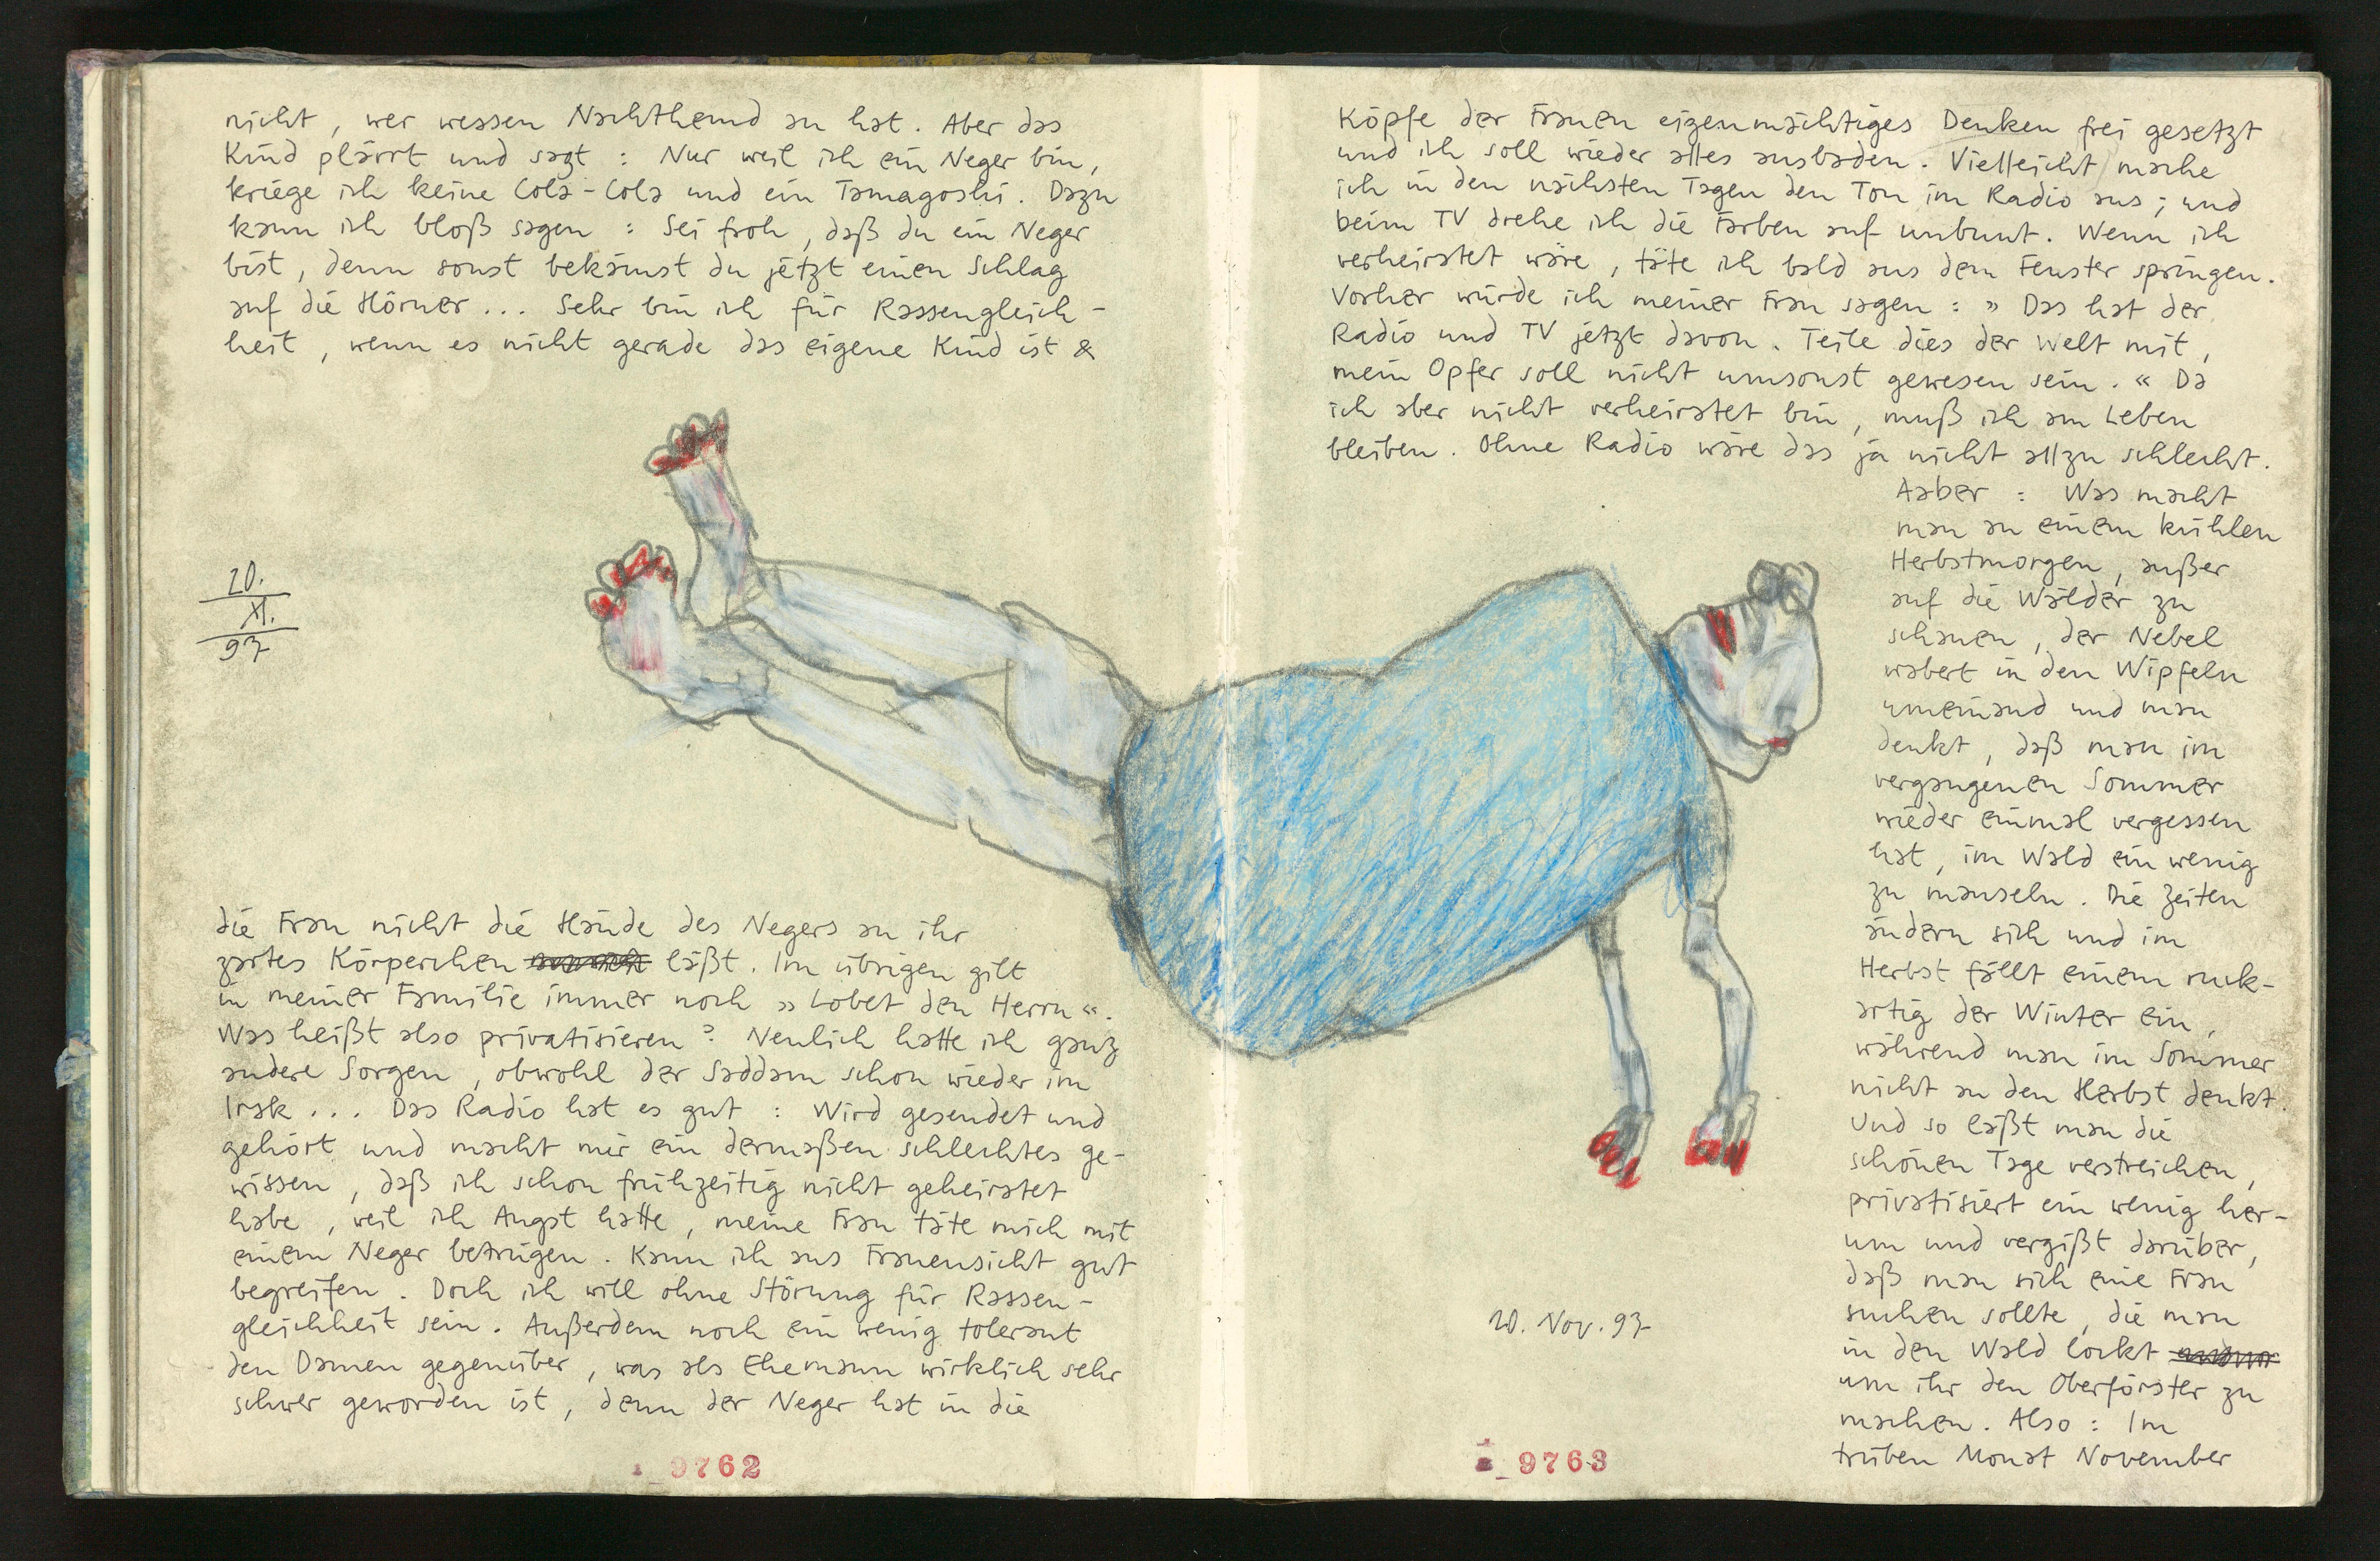 nicht, wer wessen Nachthemd an hat. Aber das
Kind plärrt und sagt : Nur weil ich ein Neger bin,
kriege ich keine Cola-Cola und ein Tamagoshi. Dazu
kann ich bloß sagen : Sei froh, daß du ein Neger
bist, denn sonst bekämst du jetzt einen Schlag
auf die Hörner... Sehr bin ich für Rassengleich-
heit, wenn es nicht gerade das eigene Kind ist &
20.
XI.
97
die Frau nicht die Hände des Negers an ihr
zartes Körperchen läßt. Im übrigen gilt
in meiner Familie immer noch »Lobet den Herrn«.
Was heißt also privatisieren? Neulich hatte ich ganz
andere Sorgen, obwohl der Saddam schon wieder im
Irak... Das Radio hat es gut : Wird gesendet und
gehört und macht mir ein dermaßen schlechtes ge-
wissen, daß ich schon frühzeitig nicht geheiratet
habe, weil ich Angst hatte, meine Frau täte mich mit
einem Neger betrügen. Kann ich aus Frauensicht gut
begreifen. Doch ich will ohne Störung für Rassen-
gleichheit sein. Außerdem noch ein wenig tolerant
den Damen gegenüber, was als Ehemann wirklich sehr
schwer geworden ist, denn der Neger hat in die
9762
Köpfe der Frauen eigenmächtiges Denken frei gesetzt
und ich soll wieder alles ausbaden. Vielleicht mache
ich in den nächsten Tagen den Ton im Radio aus; und
beim TV drehe ich die Farben auf unbunt. Wenn ich
verheiratet wäre, täte ich bald aus dem Fenster springen.
Vorher würde ich meiner Frau sagen : »Das hat der
Radio und TV jetzt davon. Teile dies der Welt mit,
mein Opfer soll nicht umsonst gewesen sein.« Da
ich aber nicht verheiratet bin, muß ich am Leben
bleiben. Ohne Radio wäre das ja nicht allzu schlecht.
Aaber : Was macht
man an einem kühlen
Herbstmorgen, außer
auf die Wälder zu
schauen, der Nebel
wabert in den Wipfeln
umeinand und man
denkt, daß man im
vergangenen Sommer
wieder einmal vergessen
hat, im Wald ein wenig
zu mauseln. Die Zeiten
ändern sich und im
Herbst fällt einem ruck-
artig der Winter ein,
während man im Sommer
nicht an den Herbst denkt.
Und so läßt man die
schönen Tage verstreichen,
privatisiert ein wenig her-
um und vergißt darüber,
daß man sich eine Frau
suchen sollte, die man
in den Wald lockt
um ihr den Oberförster zu
machen. Also : Im
trüben Monat November
20. Nov. 97
9763